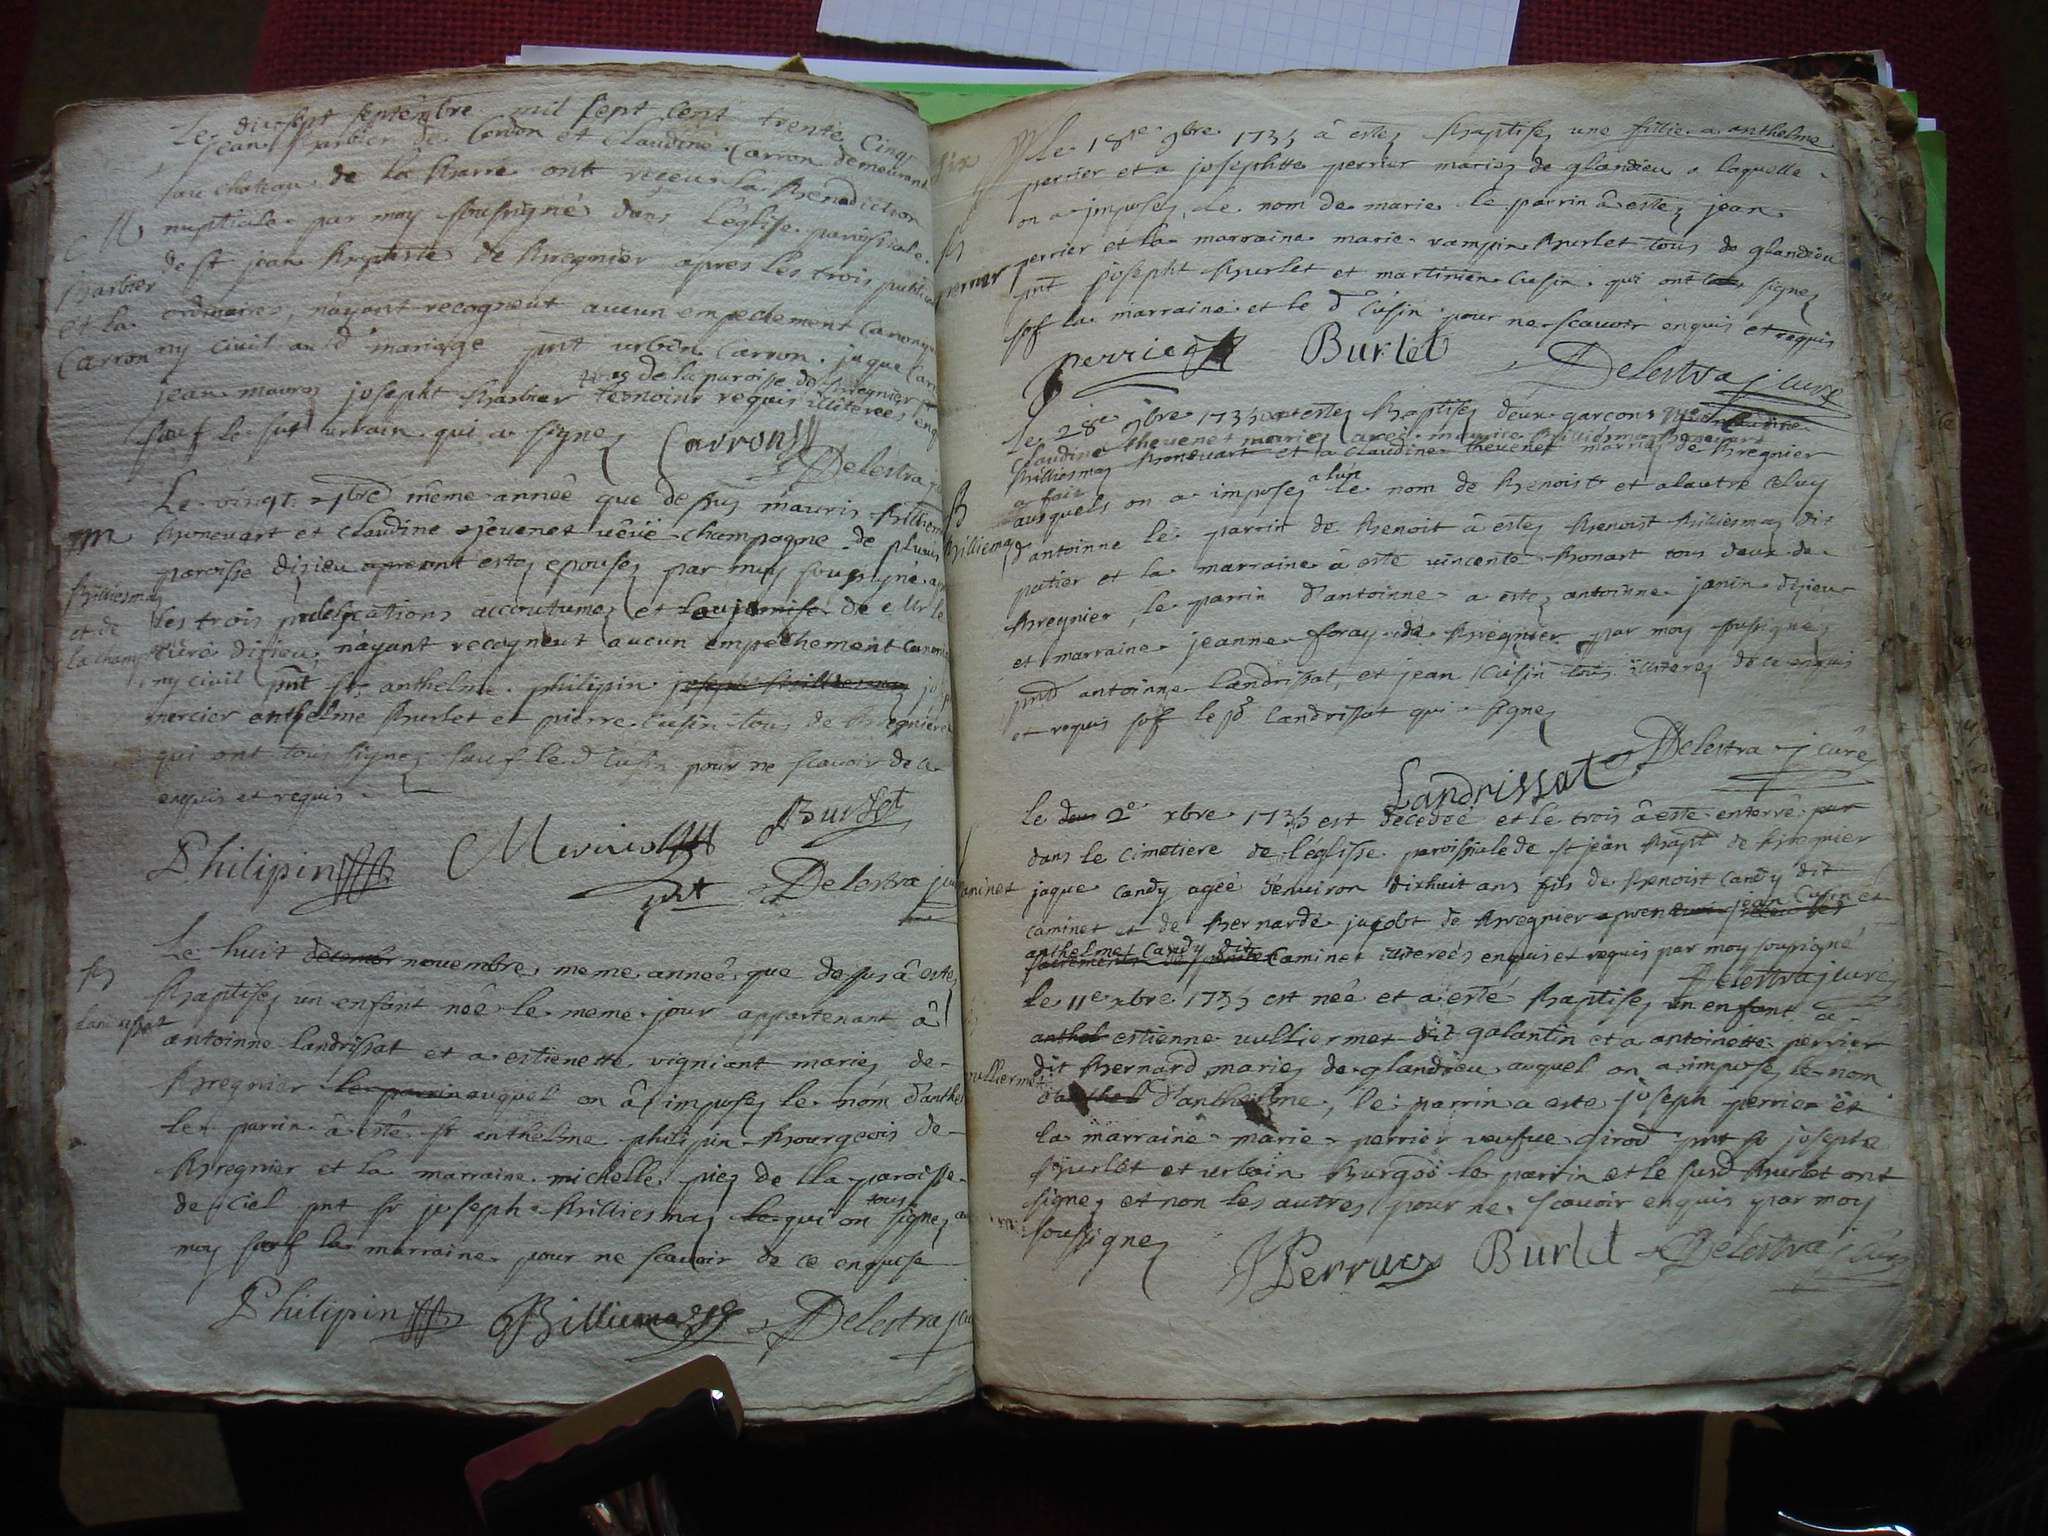 Le dixsept septembre mil sept cent trente cinq
jean Barbier de Condon et Claudine Carron demeurant
au chateau de la Barre ont reçeu la Bénédiction
nuptiale par moy soussigné dans l'église paroissiale
de st jean Baptiste de Bregnier apres les trois publica
ordinaires, n'ayant recogneut aucun empechement canoniqu
ny civil au d mariage pnt urbin Carron, jaque Carr
tous de la paroisse de Bregnier
jean maurez josepht Barbier temoins requis illiterés enq
sauf le sud urbain qui a signez
M
Barbier
et la
Carron
Carron
Delestra j
Le vingt 7bre même année que dessus mauris Billiem
Bonevart et Claudine tévenet vêuë Champagne de plusieurs
paroisse dizieu ont estez epousez par moy sousigné
les trois publications accoutumez et de Mr le
curé dizieu, n'ayant recogneut aucun empechement canoni
ny civil pnt sr anthelme philipin joseph Billiemaz
mercier enthelme Burlet et pierre Cusin tous de Bregnier
qui ont tous signez sauf le d Cusin pour ne scavoir de ce
enquis et requis
M
Billiemaz
et de
la Champ
Philipin
Burlet
pnt
Delestra j cu
Le huit decembr novembre meme année que dessus â estez
Baptisez un enfant née le meme jour appartenant â
antoinne landrissat et a estienette vigniant mariez de
Bregnier le parrin auquel on â imposez le nom d'anthel
le parrin â esté sr enthelme philipin Bourgeois de
Bregnier et la marraine michelle piez de lla paroisse
de Ciel pnt sr joseph Billiemaz le qui on tous signez
moy sauf la marraine pour ne scavoir de ce enquise
B
landrissat
Philipin Billiemaz Delestra j cu
Le 18e 9bre 1735 â estez Baptisez une fillie a anthelme
perrier et a josephtte perrier mariez de glandieu a laquelle
on a imposez le nom de marie le parrin â estez jean
perrier et la marraine marie Burlet tous de glandieu
pnt josepht Burlet et martinien Cusin qui ont signez
sof la marraine et le d Cusin pour ne scavoir enquis et requis
B
perrier
perrier Burlet
Delestra j curé
Le 28e 9bre 1735 estez Baptisez deux garcons
Claudine thevenet mariez avec maurice Billiemaz Bonevart
Billiemaz Bonevart et a claudine thevenet marriez de Bregnier
auxquels on a imposez a lun le nom de Benoist et a lautre celuy
d'antoinne le parrin de Benoit â estez Benoist Billiemaz dit
patier et la marraine â esté vincente Bonart tous deux de
Bregnier, le parrin d'antoinne a estez antoinne janin dizieu
et marraine jeanne foray de Bregnier par moy sousignez
pnt antoinne landrissat, et jean Cusin tous illiterez de ce enquis
et requis sof le sd landrissat qui a signez
B
Billiemaz
Landrissat Delestra j curé
le deu 2e xbre 1735 est décédéé et le trois â esté enterré par
dans le cimetiere de l'église paroissiale de st jean Bapt de Bregnier
jaque Candy agéé d'environ dixhuit ans fils de Benoist Candy dit
caminet et de Bernarde jacobt de Bregnier jean Cusin et
anthelmet Candy dit Caminet illitereés enquis et requis par moy sousigné
caminet
Delestra j curé
Le 11e xbre 1735 est née et a esté Baptisez un enfant â
anthel estienne vulliermet dit galantin et a antoinette perrier
dit Bernard mariez de glandieu auquel on a imposez le nom
d'anthelme, le parrin a esté joseph perrier et
la marraine marie perrier veufve girod pnt sr josepte
Burlet et urbain Burgod le parrin et le susd Burlet ont
signez et non les autres pour ne scavoir enquis par moy
soussignez
vulliermet
Perrier Burlet Delestra j curé